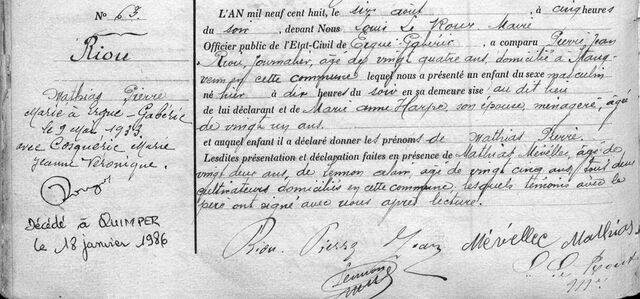 N° 63
Riou
Mathias Pierre
Marié à Ergué-Gabéric
le 2 Mai 1933
avec Cosquéric Marie
Jeanne Véronique.
Décédé à QUIMPER
le 18 janvier 1986
L'AN mil neuf cent huit, le six août, à cinq heures
du soir, devant Nous Louis Le Roux Maire
Officier public de l'Etat-Civil de Ergué-Gabéric, a comparu Pierre Jean
Riou, journalier, âgé de vingt quatre ans, domicilié à Stang
ven en cette commune lequel nous a présenté un enfant du sexe masculin
né hier à dix heures du soir en sa demeure sise au dit lieu
de lui déclarant et de Marie Anne Harpe, son épouse, ménagère, âgée
de vingt un ans.
et auquel enfant il a déclaré donner les prénoms de Mathias Pierre.
Lesdites présentation et déclaration faites en présence de Mathias Mévellec, âgé de
vingt deux ans, de Alain, âgé de vingt cinq ans, tous deux
cultivateurs domiciliés en cette commune, lesquels témoins avec le
père ont signé avec nous après lecture.
Riou Pierre Jean Mévellec Mathias